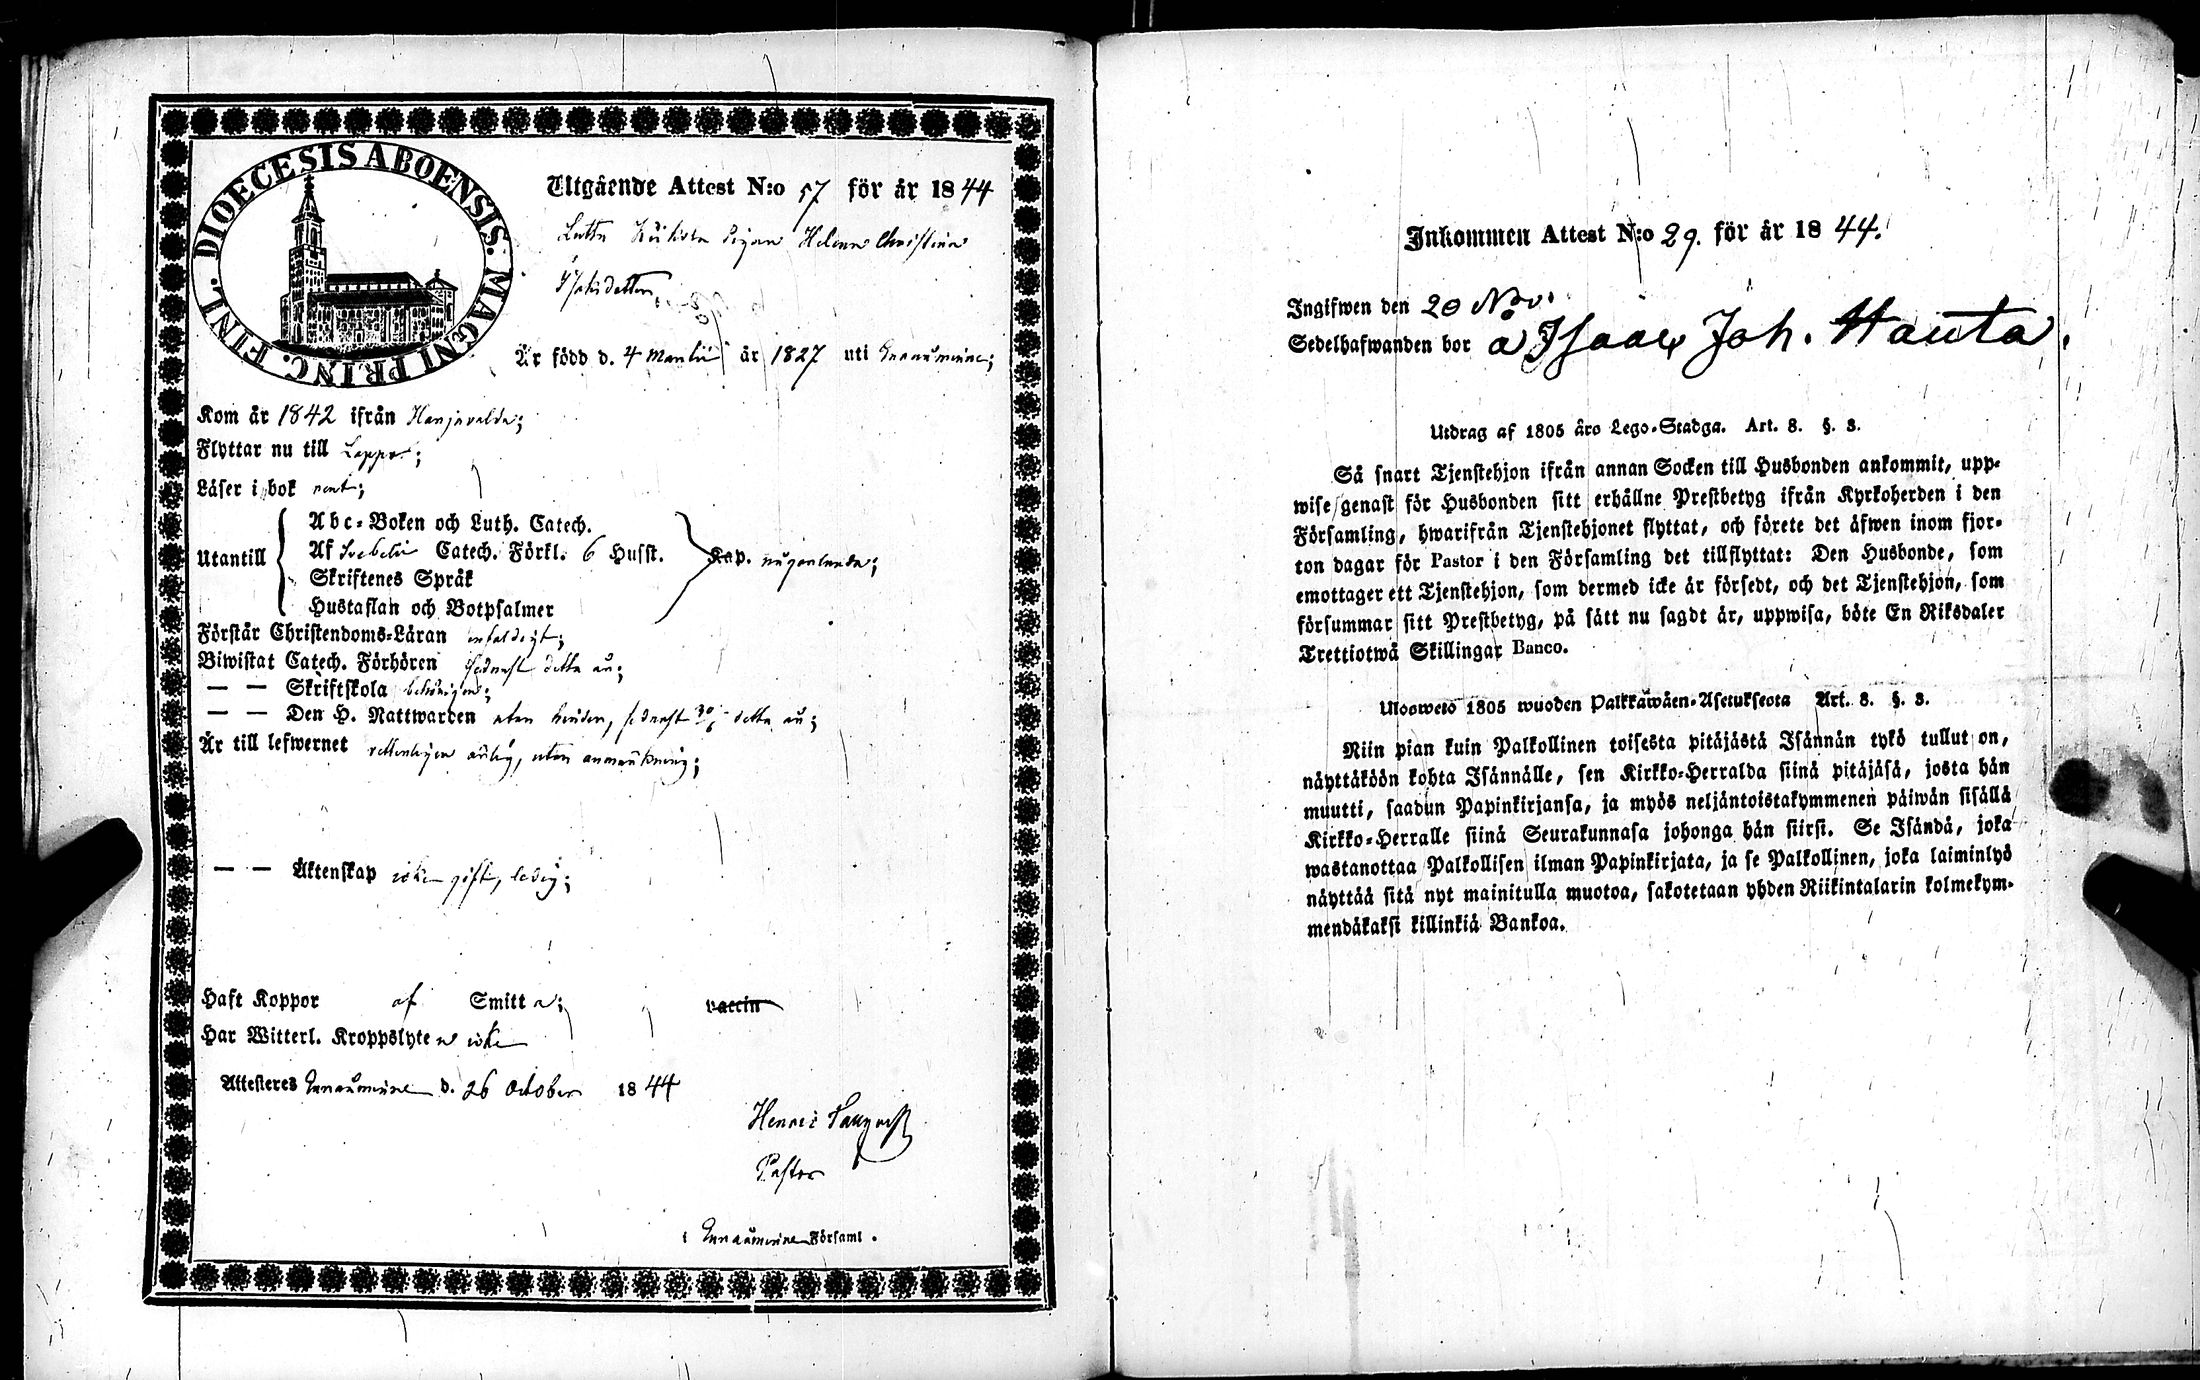 DIOECESIS ABOENSIS. MAGNI PRINC. FINL.
Utgående Attest N:o 57 för år 1844
Pigan Helena Christina
Isaksdotter,
Är född d. 4 Martii år 1827 uti
Kom år 1842 ifrån Harjavalda;
Flyttar nu till Lappo;
Läser i bok rent;
Utantill
Abc-Boken och Luth. Catech.
Af Svebelii Catech. Förkl. 6 Husst.
Skriftenes Språk
Hustaflan och Botpsalmer
Kap. någorlunda;
Förstår Christendoms-Läran enfaldigt;
Biwistat Catech. Förhören sednast detta år;
— — Skriftskola behörigen;
— — Den H. Nattwarden utan hinder, sednast detta år;
Är till lefwernet ärlig, utan anmärkning;
— — Äktenskap icke gift, ledig;
Haft Koppor af Smitta; vaccin
Har Witterl. Kroppslyten icke
Attesteres d. 26 October 1844
Henric
Pastor
i Församl.
Inkommen Attest N:o 29. för år 1844.
Ingifwen den 20 Nov.
Sedelhafwanden bor å Isaac Joh. Hauta.
Utdrag af 1805 års Lego-Stadga. Art. 8. §. 3.
Så snart Tjenstehjon ifrån annan Socken till Husbonden ankommit, upp-
wise genast för Husbonden sitt erhållne Prestbetyg ifrån Kyrkoherden i den
Församling, hwarifrån Tjenstehjonet flyttat, och förete det äfwen inom fjor-
ton dagar för Pastor i den Församling det tillflyttat: Den Husbonde, som
emottager ett Tjenstehjon, som dermed icke är försedt, och det Tjenstehjon, som
försummar sitt Prestbetyg, på sätt nu sagdt är, uppwisa, böte En Riksdaler
Trettiotwå Skillingar Banco.
Uloswetö 1805 wuoden Palkkawäen-Asetuksesta Art. 8. §. 3.
Niin pian kuin Palkollinen toisesta pitäjästä Isännän tykö tullut on,
näyttäköön kohta Isännälle, sen Kirkko-Herralda siinä pitäjäsä, josta hän
muutti, saadun Papinkirjansa, ja myös neljäntoistakymmenen päiwän sisällä
Kirkko-Herralle siinä Seurakunnasa johonga hän siirsi. Se Isändä, joka
wastanottaa Palkollisen ilman Papinkirjata, ja se Palkollinen, joka laiminlyö
näyttää sitä nyt mainitulla muotoa, sakotetaan yhden Riikintalarin kolmekym-
mendäkaksi killinkiä Bankoa.